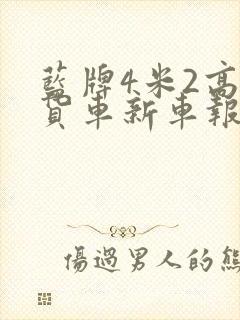 藍牌4米2高
貨車新車報
傷過男人的熊